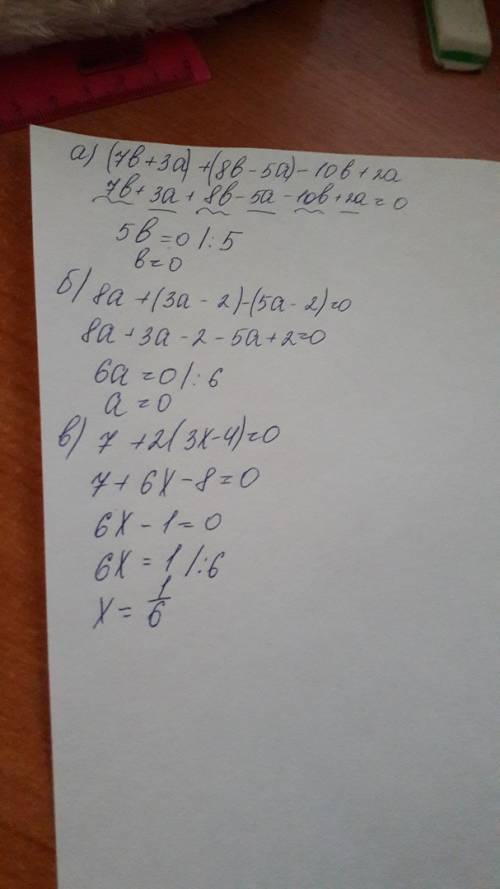 а) (7в+3а)+(8в-5а)-10в+2а
7в+3а+8в-5а-10в+2а=0
5в=0 /:5
в=0
б) 8а+(3а-2)-(5а-2)=0
8а+3а-2-5а+2=0
6а=0 /:6
а=0
в) 7+2(3х-4)=0
7+6х-8=0
6х-1=0
6х=1 /:6
х=1/6